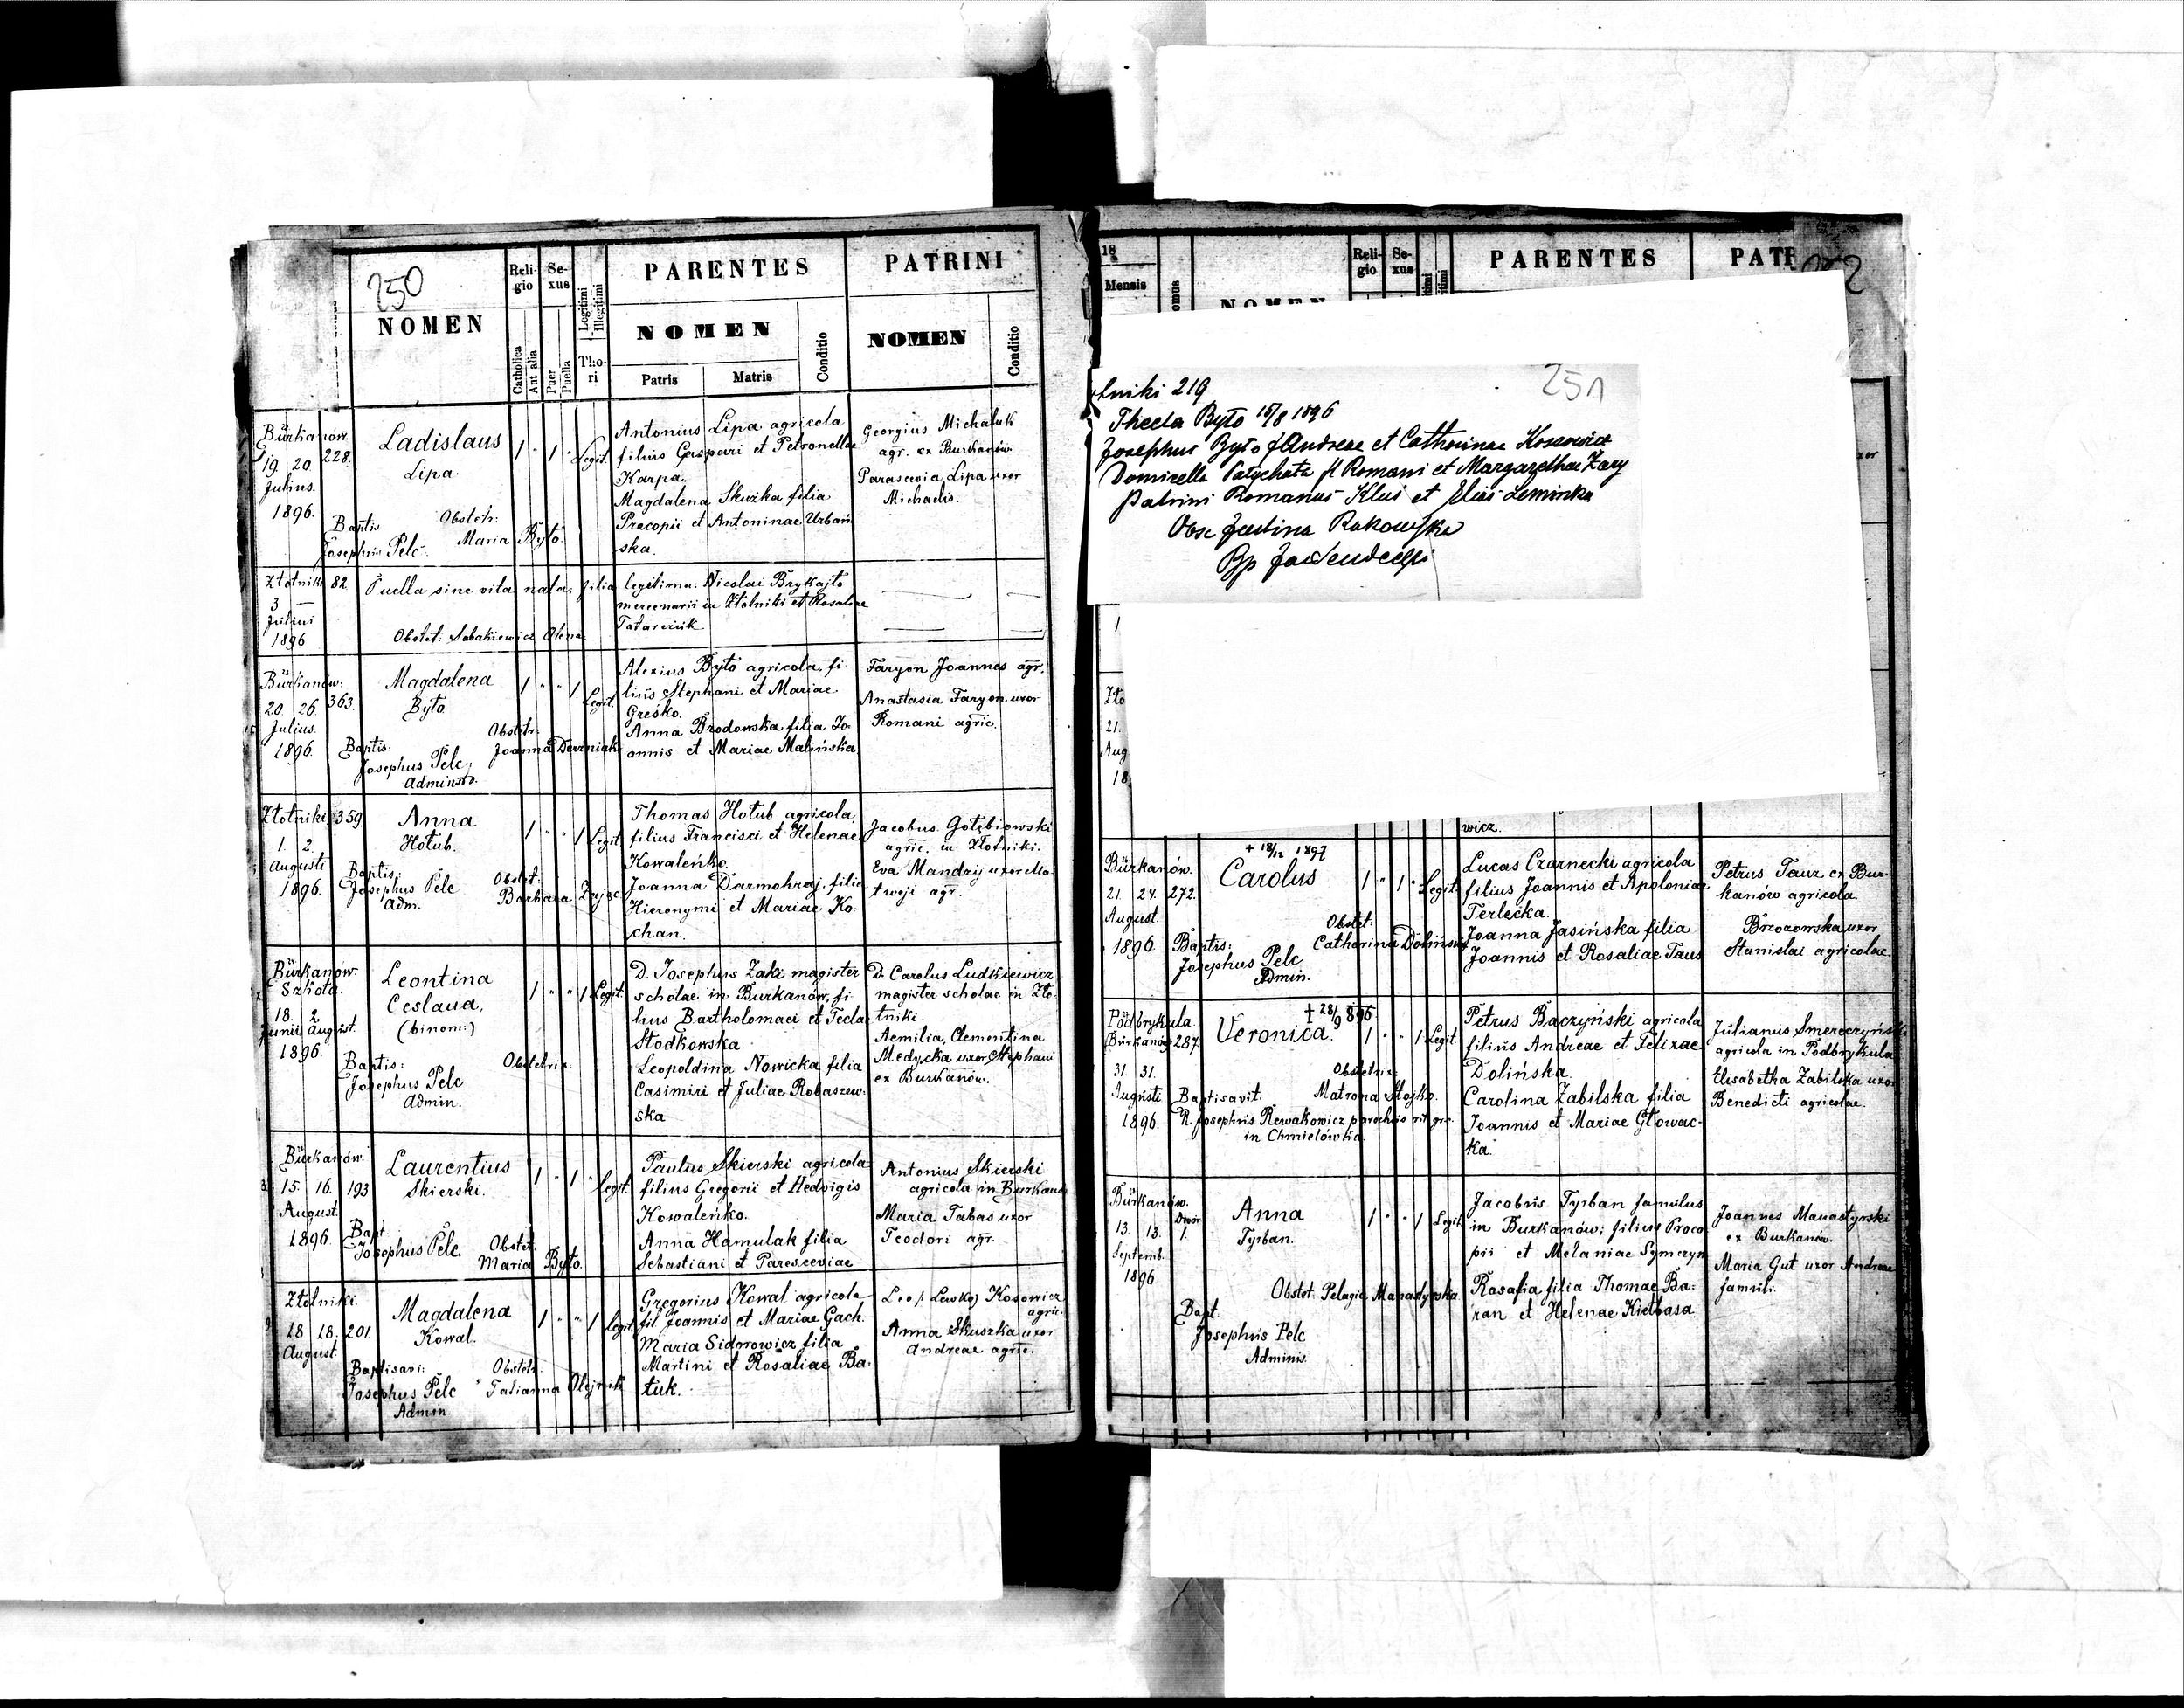 250
NOMEN
Religio
Catholica
Aut alia
Sexus
Puer
Puella
Legitimi
Illegitimi
Thori
PARENTES
NOMEN
Patris
Matris
Conditio
PATRINI
NOMEN
Conditio
Bürkanów.
19. 20. 228.
Julius.
1896.
Ladislaus
Lipa.
Obstetr:
Maria Byto.
Baptis
Josephus Pelc.
1 " 1 " Legit.
Antonius Lipa agricola
filius Gaspari et Petronellae
Karpa.
Magdalena Skuzka filia
Procopii et Antoninae Urbań
ska.
Georgius Michaluk
agr. ex Burkanów
Parascevia Lipa uxor
Michaelis.
Złotniki 82.
3
Julius
1896
Puella sine vita nata, filia legitima: Nicolai Brykajło
mercenarii in Złotniki et Rosaliae
Tatarciuk
Obstet: Sabakiewicz Olena
Bürkanów.
20. 26. 363.
Julius.
1896.
Magdalena
Byto
Obstetr:
Joanna Derzniak
Baptis:
Josephus Pelc,
Administr.
1 " " 1 Legit.
Alexius Byto agricola, fi-
lius Stephani et Mariae
Greśko.
Anna Brodowska filia Jo-
annis et Mariae Malińska
Faryon Joannes agr.
Anastasia Faryon uxor
Romani agric.
Złotniki 359.
1. 2.
Augusti
1896.
Anna
Hołub.
Baptis:
Josephus Pelc
Adm.
Obstet:
Barbara Zając
1 " " 1 Legit.
Thomas Hołub agricola,
filius Francisci et Helenae
Kowaleńko.
Joanna Darmohraj, filia
Hieronymi et Mariae Ko-
chan.
Jacobus Gołębiowski
agric. in Złotniki.
Eva Mandzij uxor Ma-
tweji agr.
Bürkanów.
Szkoła.
18. 2
Junii August.
1896.
Leontina
Ceslava,
(binom:)
Obstetrix
Baptis:
Josephus Pelc
Admin.
1 " " 1 Legit.
D. Josephus Zaki magister
scholae in Burkanów, fi-
lius Bartholomaei et Tecla
Słodkowska.
Leopoldina Nowicka filia
Casimiri et Juliae Robaszew-
ska
D. Carolus Ludkiewicz
magister scholae in Zło-
tniki.
Aemilia Clementina
Medycka uxor Stephani
ex Burkanów.
Bürkanów.
15. 16. 193
August
1896.
Laurentius
Skierski.
Bapt
Josephus Pelc.
Obstet.
Maria Byto.
1 " 1 " Legit.
Paulus Skierski agricola
filius Gregorii et Hedvigis
Kowaleńko.
Anna Hamulak filia
Sebastiani et Parasceviae
Antonius Skierski
agricola in Burkanów
Maria Tabas uxor
Teodori agr.
Złotniki.
18 18. 201.
August
Magdalena
Kowal.
Baptisavi:
Josephus Pelc
Admin
Obstetr.
Tatianna Olejnik
1 " " 1 Legit.
Gregorius Kowal agricola
fil Joannis et Mariae Gach.
Maria Sidorowicz filia
Martini et Rosaliae Ba-
tuk.
Leo (Lewko) Kosowicz
agric.
Anna Skuszka uxor
Andreae agric.
18
Mensis
NOMEN
Religio
Sexus
PARENTES
251
Złotniki 219
Thecla Byto 15/8 1896
Josephus Byto f Andreae et Catharinae Kossowicz
Domicella Patychata fl Romani et Margarethae Zary
Patrini Romanus Klus et Elias Leminka
Obse Justina Rakowska
wicz.
Bürkanów.
21. 24. 272.
August.
1896.
+ 18/12 1897
Carolus
Obstet:
Catharina Dolińska
Baptis:
Josephus Pelc
Admin.
1 " 1 " Legit.
Lucas Czarnecki agricola
filius Joannis et Apoloniae
Terlecka.
Joanna Jasińska filia
Joannis et Rosaliae Taus
Petrus Tauz ex Bur-
kanów agricola
Brzozowska uxor
Stanislai agricolae.
Podbrykula
(Bürkanów 287.
31. 31.
Augusti
1896.
+ 28/9 896
Veronica.
Obstetrix:
Matrona Stojko.
Baptisavit.
R. Josephus Rewakowicz parochus rit gr.
in Chmielówka.
1 " " 1 Legit.
Petrus Baczyński agricola
filius Andreae et Felixae
Dolińska.
Carolina Zabilska filia
Joannis et Mariae Głowac-
ka.
Julianus Smereczyński
agricola in Podbrykula
Elisabetha Zabilska uxor
Benedicti agricolae.
Bürkanów.
13. 13. Dwór
1.
Septemb.
1896.
Anna
Tyrban.
Obstet. Pelagia Manastyrska
Bapt:
Josephus Pelc
Adminis.
1 " " 1 Legit.
Jacobus Tyrban famulus
in Burkanów; filius Proco
pii et Melaniae Symczyn
Rosafia filia Thomae Ba-
ran et Helenae Kiełbasa.
Joannes Manastyrski
ex Burkanów.
Maria Gut uxor Andreae
famuli.